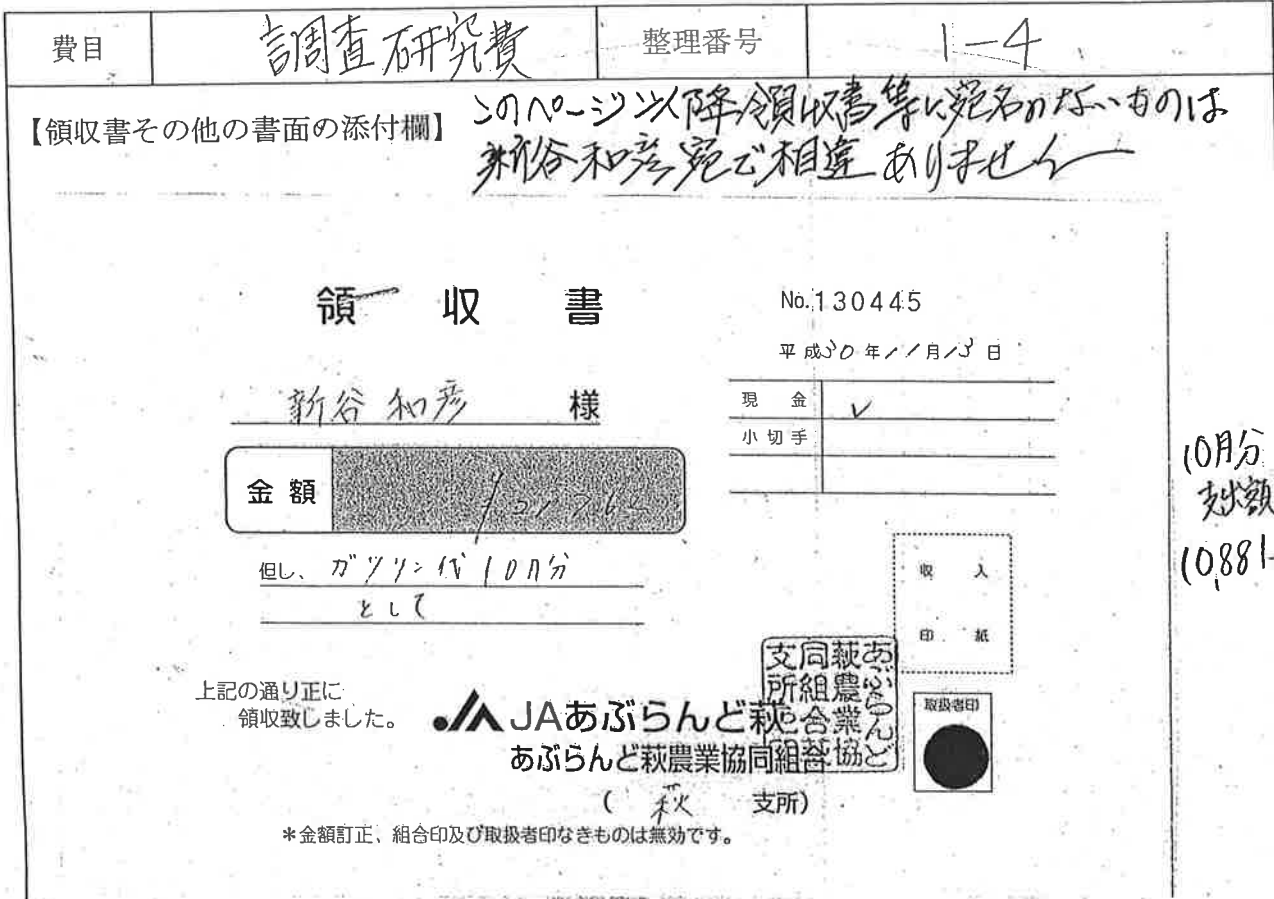 費目 調査研究費 整理番号 1-4
【領収書その他の書面の添付欄】
このページ以降領収書等に宛名のないものは
新谷和彦宛で相違ありません
領収書
No.130445
平成30年11月13日
新谷和彦 様
現金 ✓
小切手
金額
但し、ガソリン代10月分
として
10月分
支出額
10,881-
収入
印紙
上記の通り正に
領収致しました。
JAあぶらんど萩
あぶらんど萩農業協同組合
(萩 支所)
あぶらんど
萩農業協
同組合
支所
取扱者印
*金額訂正、組合印及び取扱者印なきものは無効です。